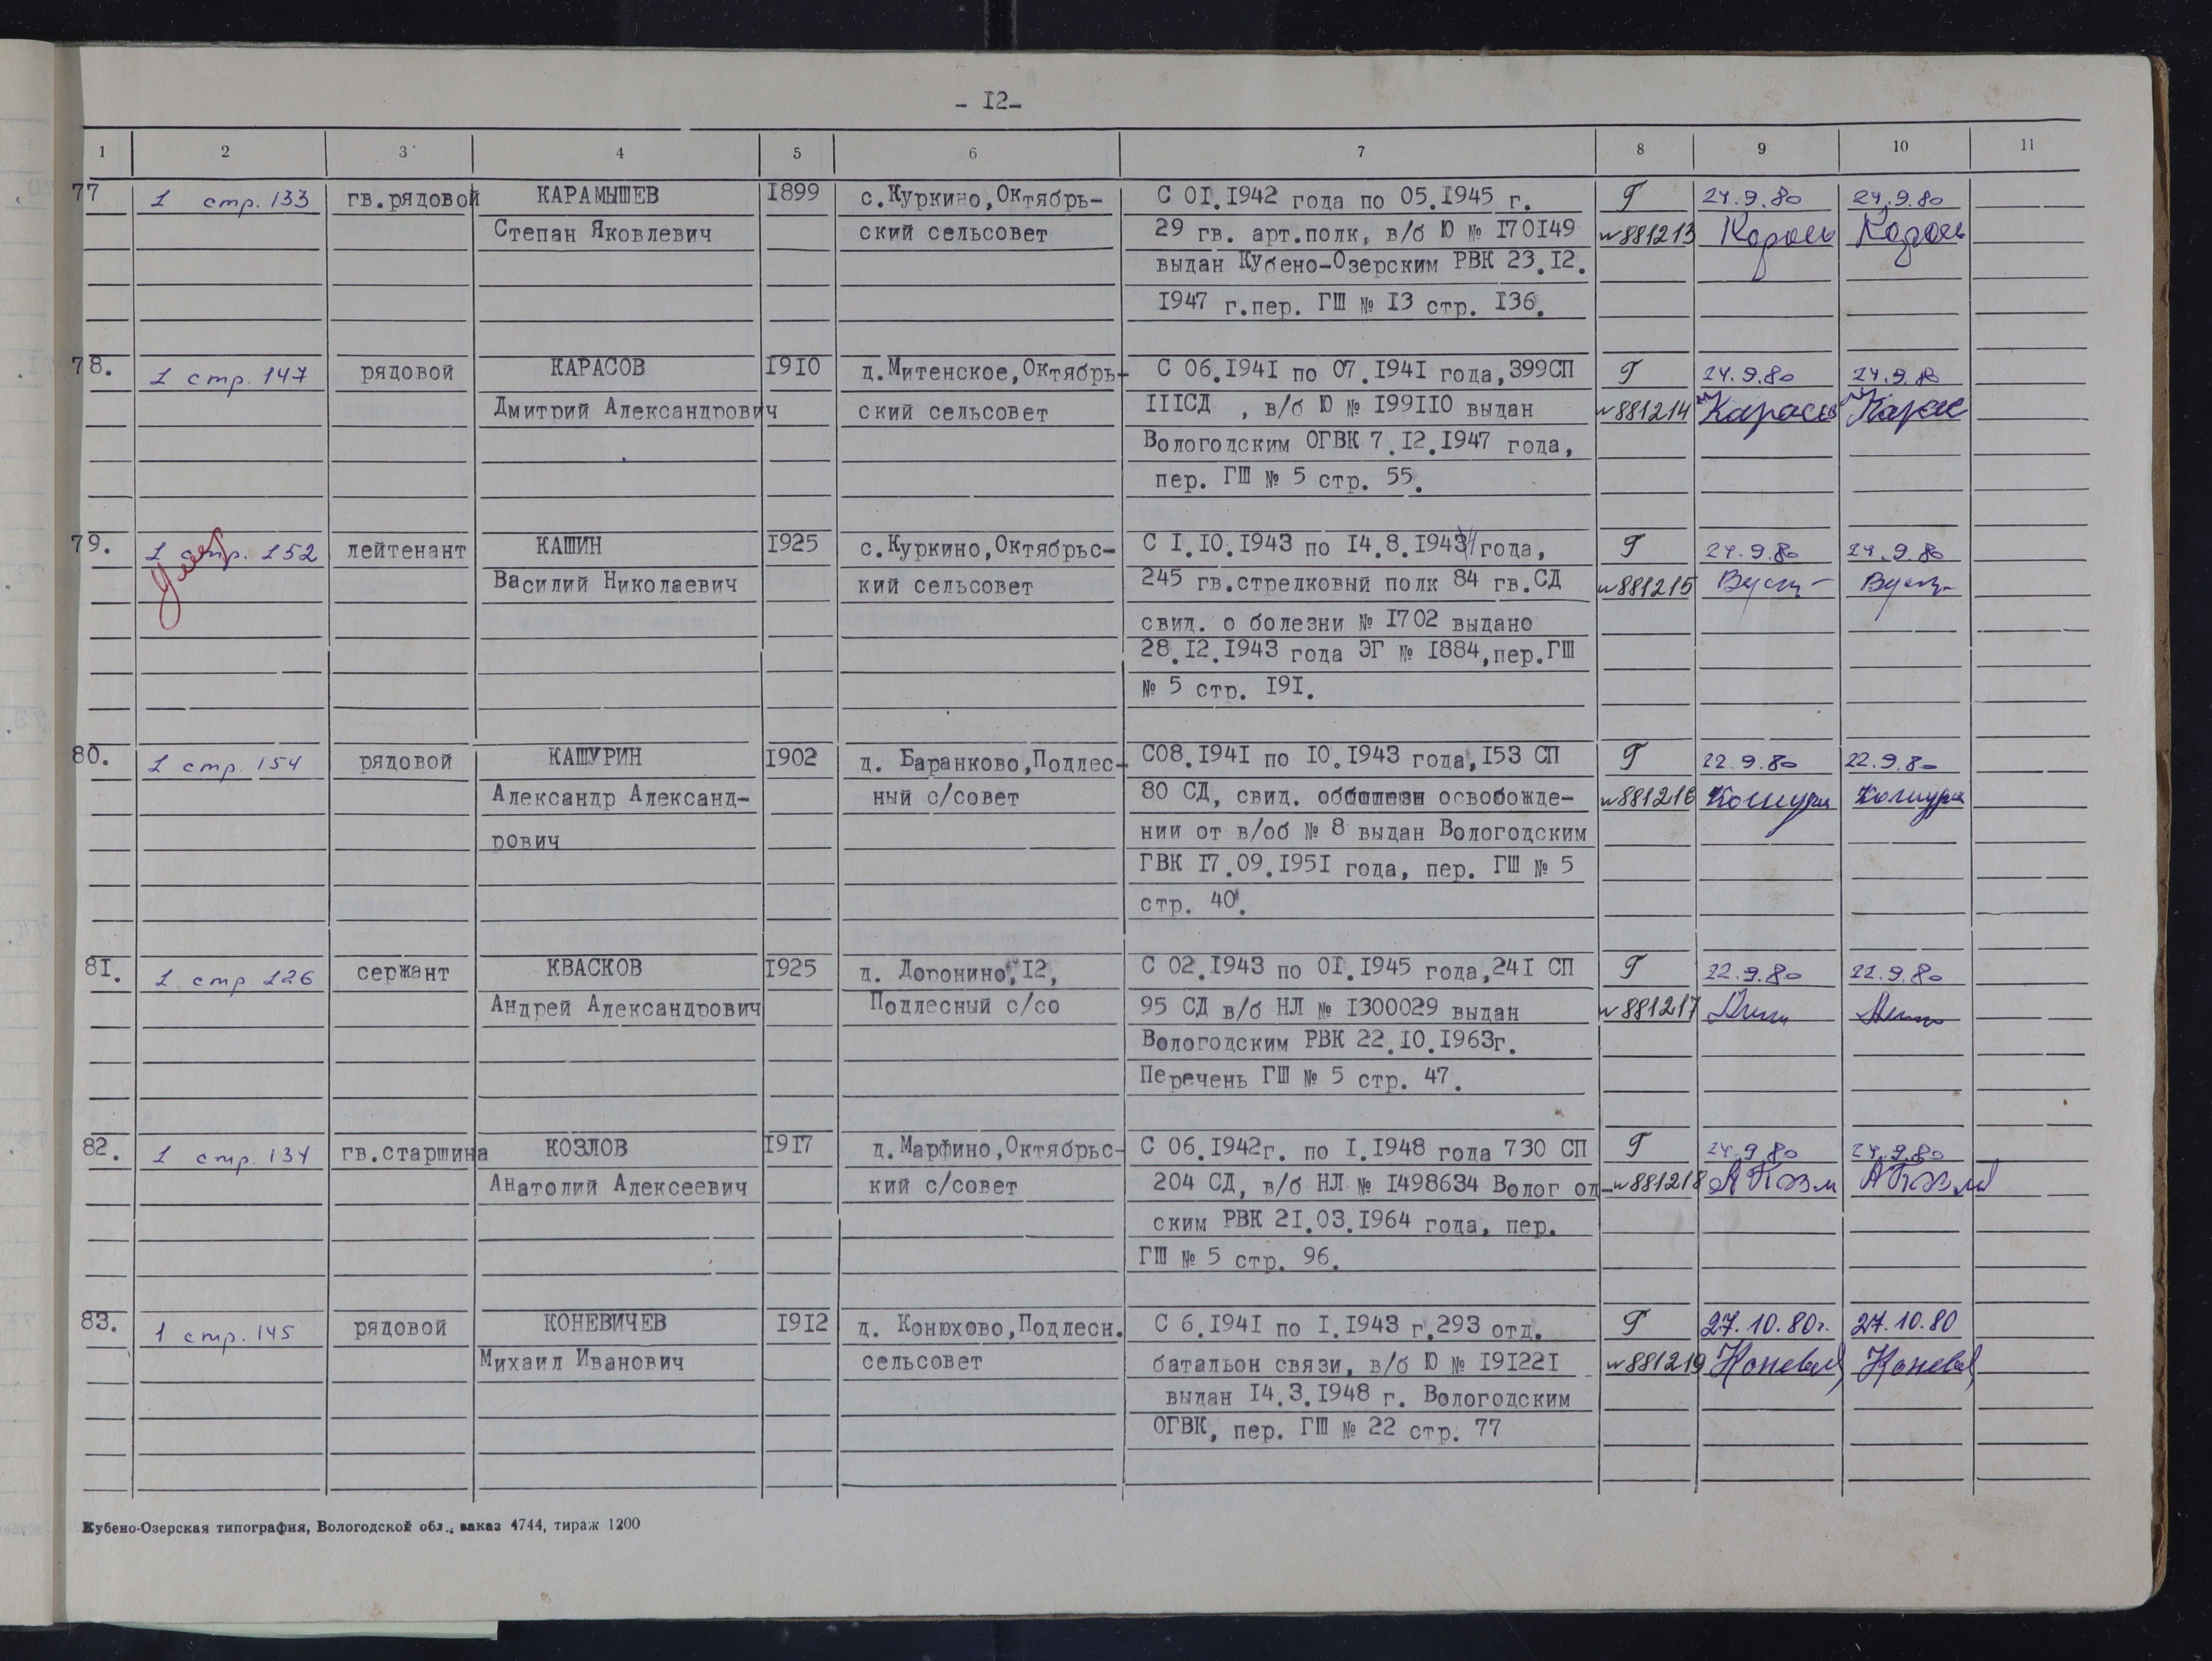 - I2-
1 2 3 4 5 6 7 8 9 10 11
77 1 стр. 133 гв.рядовой КАРАМЫШЕВ I899 с.Куркино,Октябрь- С 0I.I942 года по 05.I945 г. Г 24.9.80 24.9.80
Степан Яковлевич ский сельсовет 29 гв. арт.полк, в/б Ю № I70I49 №881213
выдан Кубено-Озерским РВК 23.I2.
I947 г.пер. ГШ № I3 стр. I36.
78. 1 стр. 147 рядовой КАРАСОВ I9I0 д.Митенское,Октябрь- С 06.I94I по 07.I94I года,399СП Г 24.9.80 24.9.80
Дмитрий Александрович ский сельсовет IIIСД , в/б Ю № I99II0 выдан №881214
Вологодским ОГВК 7.I2.I947 года,
пер. ГШ № 5 стр. 55.
79. 1 стр. 152 лейтенант КАШИН I925 с.Куркино,Октябрьс- С I.I0.I943 по I4.8.I944 года, Г 24.9.80 24.9.80
умер Василий Николаевич кий сельсовет 245 гв.стрелковый полк 84 гв.СД №881215
свид. о болезни № I702 выдано
28.I2.I943 года ЭГ № I884,пер.ГШ
№ 5 стр. I9I.
80. 1 стр. 154 рядовой КАШУРИН I902 д. Баранково,Подлес- С08.I94I по I0.I943 года,I53 СП Г 22.9.80 22.9.80
Александр Александ- ный с/совет 80 СД, свид. об освобожде- №881216 Кошури Кошури
рович нии от в/об № 8 выдан Вологодским
ГВК I7.09.I95I года, пер. ГШ № 5
стр. 40.
8I. 1 стр. 126 сержант КВАСКОВ I925 д. Доронино,I2, С 02.I943 по 0I.I945 года,24I СП Г 22.9.80 22.9.80
Андрей Александрович Подлесный с/со 95 СД в/б НЛ № I300029 выдан №881217
Вологодским РВК 22.I0.I963г.
Перечень ГШ № 5 стр. 47.
82. 1 стр. 134 гв.старшина КОЗЛОВ I9I7 д.Марфино,Октябрьс- С 06.I942г. по I.I948 года 730 СП Г 24.9.80 24.9.80
Анатолий Алексеевич кий с/совет 204 СД, в/б НЛ № I498634 Волог од- №881218
ским РВК 2I.03.I964 года, пер.
ГШ № 5 стр. 96.
83. 1 стр. 145 рядовой КОНЕВИЧЕВ I9I2 д. Конюхово,Подлесн. С 6.I94I по I.I943 г.293 отд. Г 27.10.80г. 27.10.80
Михаил Иванович сельсовет батальон связи, в/б Ю № I9I22I №881219 Коневич Коневич
выдан I4.3.I948 г. Вологодским
ОГВК, пер. ГШ № 22 стр. 77
Кубено-Озерская типография, Вологодской обл., заказ 4744, тираж 1200